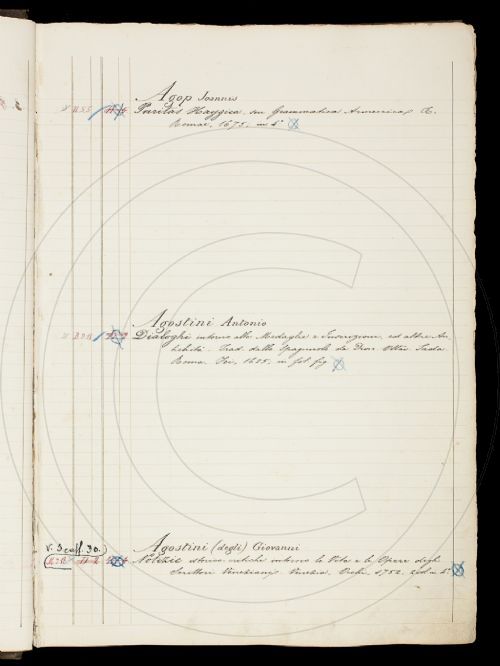 Agop Joannes
Puritas Haygica, seu Grammatica Armenica
Romae, 1675, in 4°
Agostini Antonio
Dialoghi intorno alle Medaglie e Inscrizioni, ed altre An-
tichità. Trad. dallo Spagnuolo da Dion. Ottav. Sada
Roma. 1625, in fol. fig.
V. Scaff. 30.
Agostini (degli) Giovanni
Notizie istorico critiche intorno la Vita e le Opere degli
Scrittori Veneziani. Venezia. 1752, in 4°